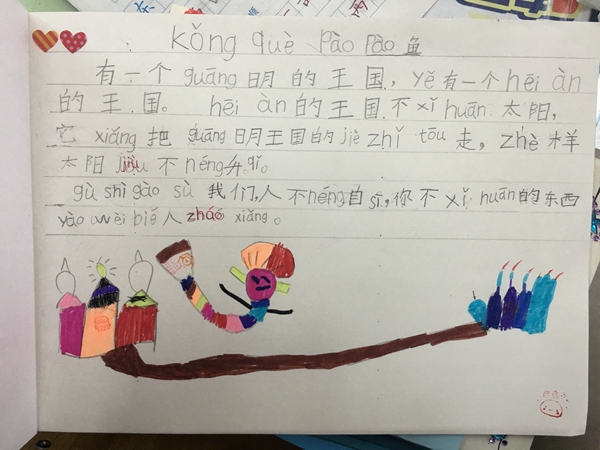 kǒng què Pào Pào 鱼
有一个 guāng 明 的 王 国，yě 有一个 hēi àn
的 王 国。 hēi àn 的 王 国 不 xǐ huān 太 阳，
它 xiǎng 把 guāng 明 王 国 的 jiè zhǐ tōu 走，zhè 样
太 阳 jiù 不 néng 升 qǐ。
gù shì gào sù 我们，人 不 néng 自 sī，你 不 xǐ huān 的 东西
yào wèi bié 人 zháo xiǎng。